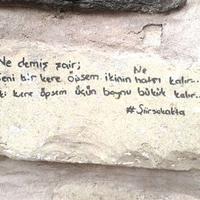 Ne demiş şair;
Seni bir kere öpsem ikinin Ne hatrı kalır..
iki kere öpsem üçün boynu bükük kalır..
#Şiirsokakta